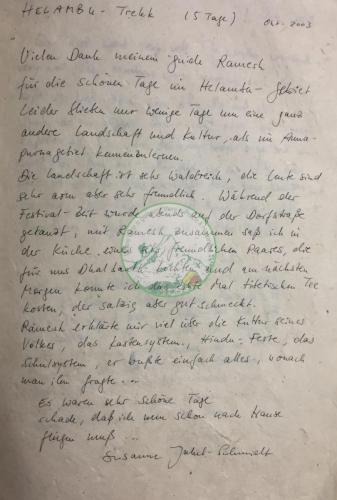 HELAMBU - Trekk (5 Tage) Okt. 2003
Vielen Dank meinem guide Ramesh
für die schönen Tage im Helambu-Gebiet
Leider blieben nur wenige Tage um eine ganz
andere Landschaft und Kultur, als im Anna-
purnagebiet kennenzulernen.
Die Landschaft ist sehr waldreich, die Leute sind
sehr arm aber sehr freundlich. Während der
Festival-Zeit wurde abends auf der Dorfstraße
getanzt, mit Ramesh zusammen saß ich in
der Küche eines sehr freundlichen Paares, die
für uns Dhal bhat kochten und am nächsten
Morgen konnte ich das erste Mal tibetischen Tee
kosten, der salzig aber gut schmeckt.
Ramesh erklärte mir viel über die Kultur seines
Volkes, das Kastensystem, Hindu-Feste, das
Schulsystem, er wußte einfach alles, wonach
man ihn fragte...
Es waren sehr schöne Tage
schade, daß ich nun schon nach Hause
fliegen muß...
Susanne